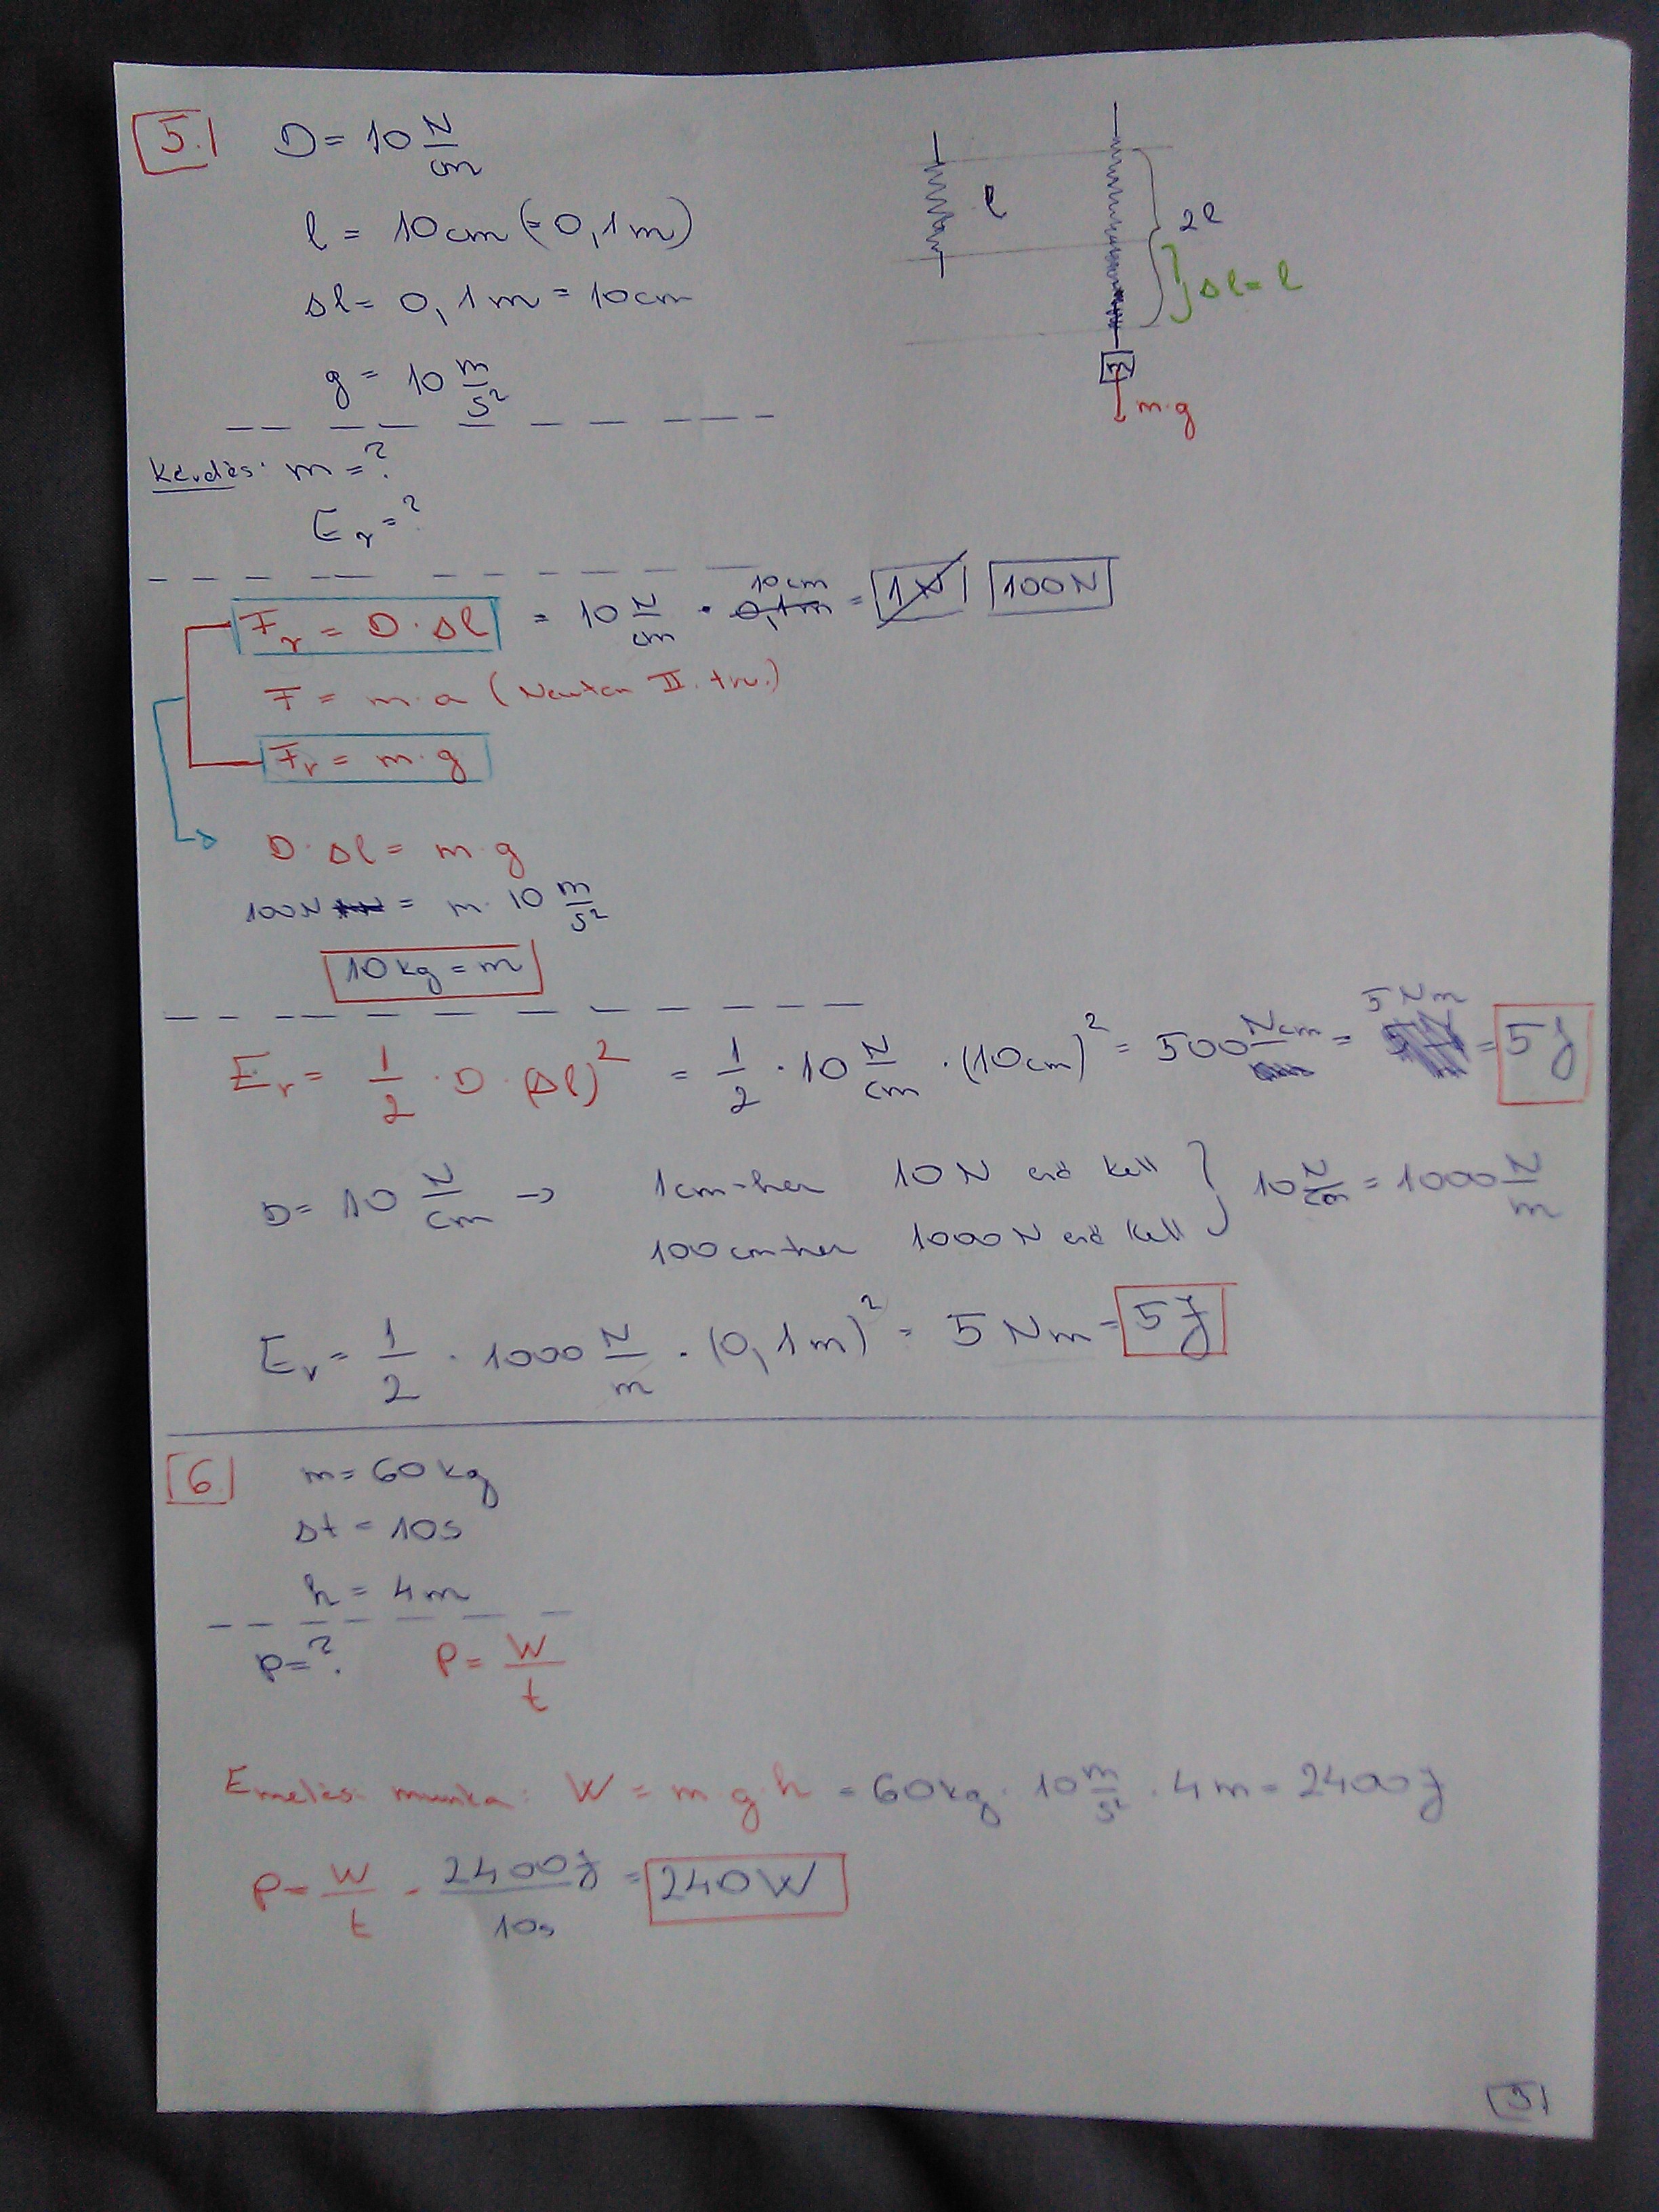 5.
D = 10 N/cm
l = 10cm (= 0,1m)
Δl = 0,1m = 10cm
g = 10 m/s²
l
2l
Δl = l
m
m·g
Kérdés: m = ?
E_r = ?
F_r = D·Δl = 10 N/cm · 0,1m 10cm = 1N 100N
F = m·a (Newton II. trv.)
F_r = m·g
D·Δl = m·g
100N = m·10 m/s²
10kg = m
E_r = 1/2 · D·(Δl)² = 1/2 · 10 N/cm · (10cm)² = 500 Ncm = 5Nm = 5J
D = 10 N/cm → 1cm-hez 10N erő kell } 10 N/cm = 1000 N/m
100cm-hez 1000N erő kell
E_r = 1/2 · 1000 N/m · (0,1m)² = 5Nm = 5J
6
m = 60kg
Δt = 10s
h = 4m
P = ? P = W/t
Emelési munka: W = m g·h = 60kg · 10 m/s² · 4m = 2400J
P = W/t = 2400J/10s = 240W
3